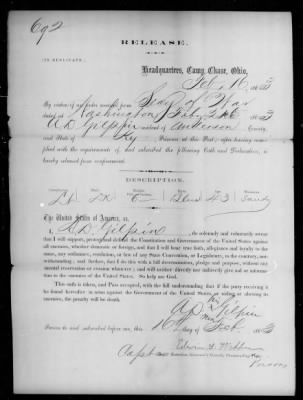 692
RELEASE.
[IN DUPLICATE.]
Headquarters, Camp Chase, Ohio,
Feb 16 1863
By virtue of an order received from Secy of War
dated at Washington Feb 1863
A D Gilpin resident of Anderson County,
and State of Ky, Prisoner at this Post, after having complied
with the requirements of, and subscribed the following Oath and Declaration, is
hereby released from confinement.
DESCRIPTION.
The United States of America, ss.
I, A. D. Gilpin, do solemnly and voluntarily swear
that I will support, protect and defend the Constitution and Government of the United States
against all enemies, whether domestic or foreign, and that I will bear true faith, allegiance and loyalty to
the same, any ordinance, resolution, or law of any State Convention, or Legislature, to the contrary, not-
withstanding; and further, that I do this with a full determination, pledge and purpose, without any
mental reservation or evasion whatever; and will neither directly nor indirectly give aid or informa-
tion to the enemies of the United States. So help me God.
This oath is taken, and Pass accepted, with the full understanding that if the party receiving it
be found hereafter in arms against the Government of the United States or aiding or abetting its
enemies, the penalty will be death.
A D his Gilpin
mark
Sworn to and subscribed before me, this 16 day of Feb 1863
Edwin L. Webber
Capt
Prisons